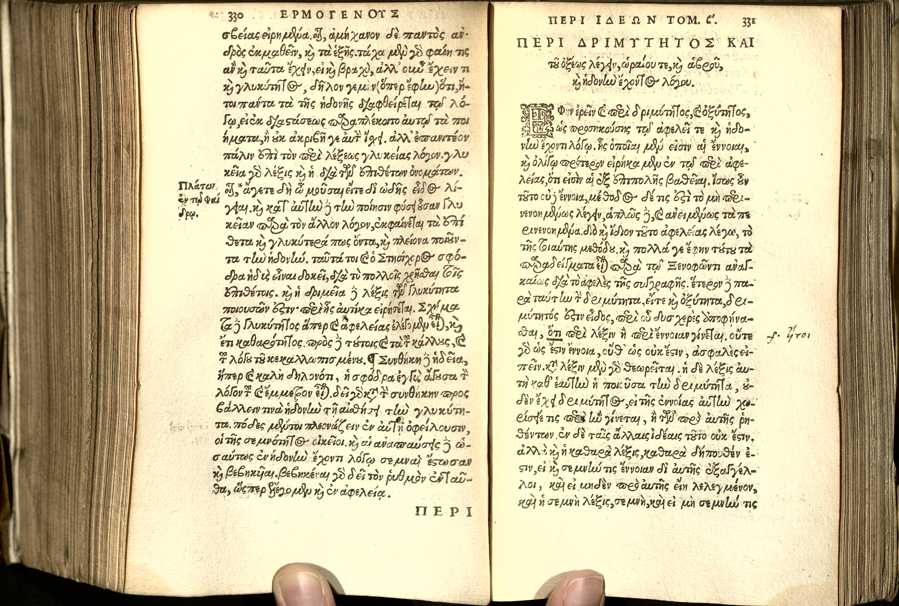 330 ΕΡΜΟΓΕΝΟΥΣ
σβείας εἰρημένα. δὲ, ἀμήχανον δὲ παντὸς ἀν-
δρὸς ἐκμαθεῖν, καὶ τὰ ἑξῆς. τάχα μὲν γὰρ φαίη τις
ἂν καὶ ταῦτα ἔχειν, εἰ καὶ βραχὺ, ἀλλ' ὅμως ἔχειν τι
καὶ γλυκύτητος, δῆλον γε μὴν (ὅπερ ἔφην) ὅτι, ἤ-
τοι πάντα τὰ τῆς ἡδονῆς διαφθείρεται τῷ λό-
γῳ, εἰ ἐκ διαστάσεως παραπλέκοιτο αὐτῷ τὰ ποι
ήματα, ἢ οὐκ ἀκριβῆ γε αὐτὰ ἴσχει. ἀλλ' ἐπανιτέον
πάλιν ἐπὶ τὸν περὶ λέξεως γλυκείας λόγον. γλυ
κεῖα γὰρ λέξις καὶ ἡ διὰ τῶν ἐπιθέτων ὀνομάτων.
Πλάτων
ἐν τῷ Φαί
δρῳ.
ἄγετε δὴ ὦ μοῦσαι εἴτε δι' ὠδῆς εἶδος λί-
γειαι. καὶ κατ' αὐτὴν δὲ τὴν ποίησιν φύσει οὖσαν γλυ
κεῖαν παρὰ τὸν ἄλλον λόγον, ἐκφαίνεται τὰ ἐπί
θετα καὶ γλυκύτερά πως ὄντα, καὶ πλείονα ποιοῦν-
τα τὴν ἡδονήν. ταύτῃ τοι καὶ ὁ Στησίχορος σφό-
δρα ἡδὺς εἶναι δοκεῖ, διὰ τὸ πολλοῖς χρῆσθαι τοῖς
ἐπιθέτοις. καὶ ἡ δριμεῖα δὲ λέξις τῶν γλυκύτητα
ποιουσῶν ἐστιν. περὶ ἧς αὐτίκα εἰρήσεται. Σχήμα
τα δὲ γλυκύτητος ἅπερ καὶ ἀφελείας ἐλέγομεν εἶναι, καὶ
ἔτι καθαρότητος. πρὸς δὲ τούτοις καὶ τὰ τοῦ κάλλους, καὶ
τοῦ λόγου τοῦ κεκαλλωπισμένου. ¶ Συνθήκη δὲ ἡδεῖα,
ἥπερ καὶ καλὴ δηλονότι, ἡ σφόδρα ἐγγὺς ἄγουσα τὸν
λόγον τοῦ καὶ ἔμμετρον εἶναι. δεῖ γὰρ κατὰ τὴν συνθήκην προσ
βάλλειν τινὰ ἡδονὴν τῇ αἰσθήσει τὴν γλυκύτη-
τα. πόδες μέντοι πλεονάζειν ἐν αὐτῇ ὀφείλουσιν,
οἱ τῆς σεμνότητος οἰκεῖοι. καὶ αἱ ἀναπαύσεις δὲ ὡ-
σαύτως ἐν ἡδονὴν ἔχοντι λόγῳ σεμναὶ ἔστωσαν
καὶ βεβηκυῖαι. βεβηκέναι γὰρ δεῖ τὸν ῥυθμὸν ἐνταῦ-
θα, ὥσπερ ἐλέγομεν καὶ ἐν ἀφελείᾳ.
ΠΕΡΙ
ΠΕΡΙ ΙΔΕΩΝ ΤΟΜ. ϛ'. 331
ΠΕΡΙ ΔΡΙΜΥΤΗΤΟΣ ΚΑΙ
τοῦ ὀξέως λέγειν, ὡραίου τε, καὶ ἁβροῦ,
καὶ ἡδονὴν ἔχοντος λόγου.
ἔφην ἐρεῖν καὶ περὶ δριμύτητος, καὶ ὀξύτητος,
ὡς προσηκούσης τῷ ἀφελεῖ τε καὶ ἡδο-
νὴν ἔχοντι λόγῳ. ἧς ὁποῖαι μέν εἰσιν αἱ ἔννοιαι,
καὶ ὀλίγῳ πρότερον εἰρήκαμεν ἐν τῷ περὶ ἀφε-
λείας, ὅτι εἰσὶν αἱ ἐξ ἐπιπολῆς βαθεῖαι. ἴσως οὖν
τοῦτο οὐ δὲ ἔννοια, μέθοδος δέ τις ἐστὶ τὸ μὴ περι-
νενοημένως λέγειν, ἁπλῶς δὲ, καὶ ἀνειμένως τὰ πε
ρινενοημένα. διὸ καὶ ἴδιον τοῦτο ἀφελείας λέγω, τὸ
τῆς τοιαύτης μεθόδου. καὶ πολλά γε ἔφην τούτου τὰ
παραδείγματα εἶναι παρὰ τῷ Ξενοφῶντι ἀναγ-
καίως διὰ τὸ ἀφελὲς τῆς συγγραφῆς. ἕτερον δὲ πα-
ρὰ ταύτην τὴν δριμύτητα, εἴτε καὶ ὀξύτητα, δρι-
μύτητός ἐστιν εἶδος, περὶ οὗ δυσχερὲς ἀποφήνα-
σθαι, ὅτι περὶ λέξιν ἢ περὶ ἔννοιαν γίνεται. οὔτε
ἤτοι
γὰρ ὡς ἔστιν ἔννοια, οὔθ' ὡς οὐκ ἔστιν, ἀσφαλὲς εἰ-
πεῖν. κατὰ λέξιν μὲν γὰρ θεωρεῖται. ἡ δὲ λέξις αὐ-
τὴ καθ' ἑαυτὴν ἡ ποιοῦσα τὴν δριμύτητα, οὐ-
δὲν ἔχει δριμύτητος, εἰ τῆς ἐννοίας αὐτὴν χω-
ρίσειέ τις περὶ ἣν γίνεται, ἢ τῶν πρὸ αὐτῆς ῥη-
θέντων. ἐν δὲ ταῖς ἄλλαις ἰδέαις τοῦτο οὐκ ἔστιν.
ἀλλὰ καὶ ἡ καθαρὰ λέξις, καθαρὰ δήπουθέν ἐ-
στιν, εἰ καὶ σεμνήν τις ἔννοιαν δι' αὐτῆς ἐξαγγέλ-
λοι, καὶ εἰ μηδὲν πρὸ αὐτῆς εἴη λελεγμένον,
καὶ ἡ σεμνὴ λέξις, σεμνὴ, καὶ εἰ μὴ σεμνήν τις